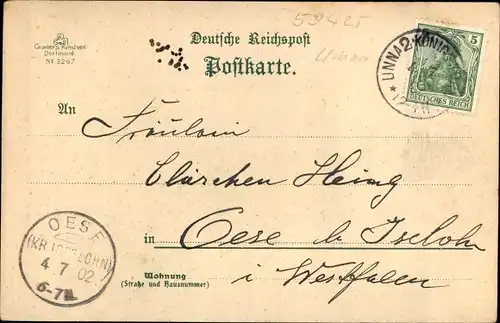 59425
Unna
Deutsche Reichspost
Postkarte.
Dortmund.
No 2267
UNNA-KÖNIG
5
DEUTSCHES REICH
An
Fräulein
Clärchen Heing
in Oese b. Iselohn
i Westfalen
Wohnung
(Straße und Hausnummer)
OESE
(KR. ISERLOHN)
4 7 02
6-7N